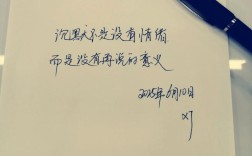 沉默不是没有情绪
而是没有再说的意义
2025年6月10日